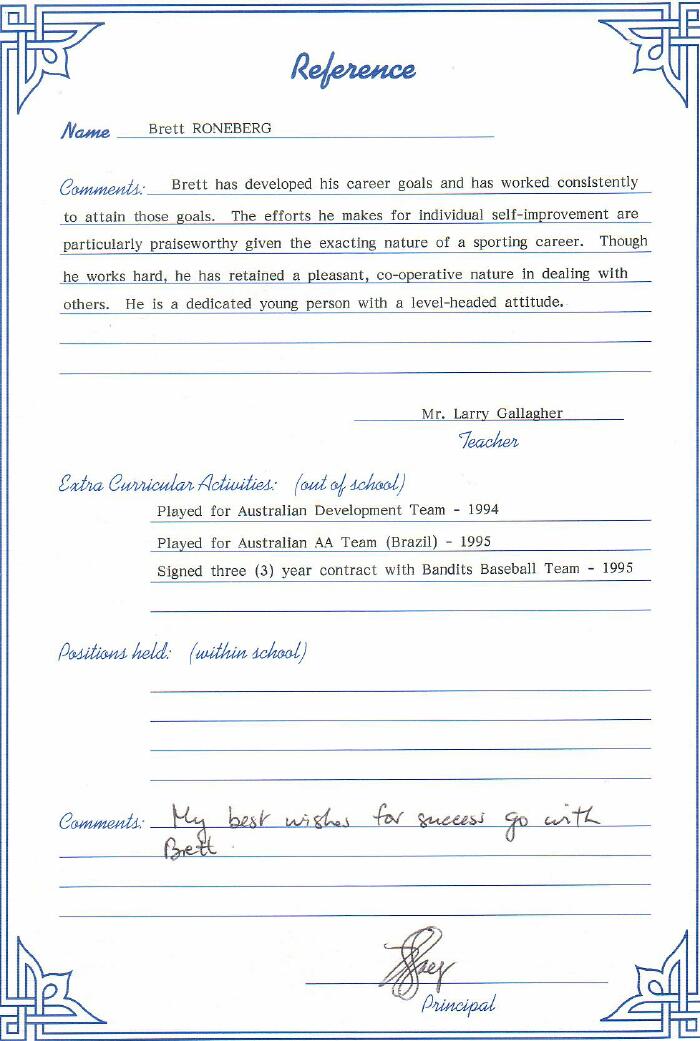 Reference
Name Brett RONEBERG
Comments: Brett has developed his career goals and has worked consistently
to attain those goals. The efforts he makes for individual self-improvement are
particularly praiseworthy given the exacting nature of a sporting career. Though
he works hard, he has retained a pleasant, co-operative nature in dealing with
others. He is a dedicated young person with a level-headed attitude.
Mr. Larry Gallagher
Teacher
Extra Curricular Activities: (out of school)
Played for Australian Development Team - 1994
Played for Australian AA Team (Brazil) - 1995
Signed three (3) year contract with Bandits Baseball Team - 1995
Positions held: (within school)
Comments: My best wishes for success go with
Brett.
Principal